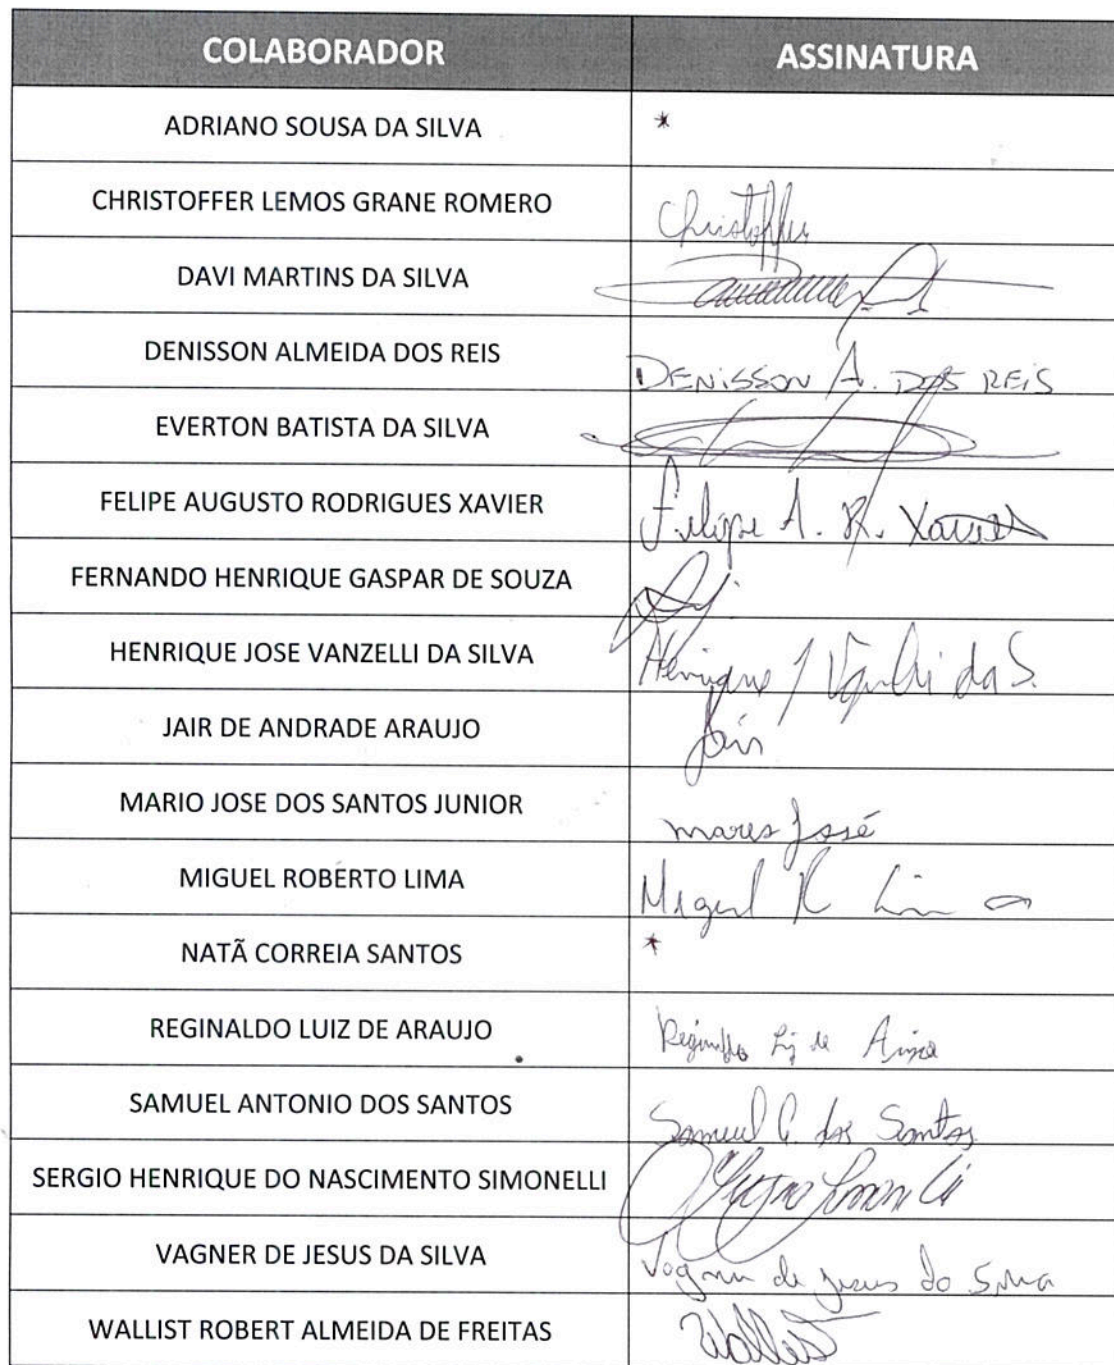 COLABORADOR ASSINATURA
ADRIANO SOUSA DA SILVA *
CHRISTOFFER LEMOS GRANE ROMERO Christoffer
DAVI MARTINS DA SILVA
DENISSON ALMEIDA DOS REIS DENISSON A. DOS REIS
EVERTON BATISTA DA SILVA
FELIPE AUGUSTO RODRIGUES XAVIER Felipe A. R. Xavier
FERNANDO HENRIQUE GASPAR DE SOUZA
HENRIQUE JOSE VANZELLI DA SILVA Henrique J Vanzelli da S.
JAIR DE ANDRADE ARAUJO Jair
MARIO JOSE DOS SANTOS JUNIOR José
MIGUEL ROBERTO LIMA Miguel R Lima
NATÃ CORREIA SANTOS *
REGINALDO LUIZ DE ARAUJO Reginaldo de
SAMUEL ANTONIO DOS SANTOS Samuel dos Santos
SERGIO HENRIQUE DO NASCIMENTO SIMONELLI
VAGNER DE JESUS DA SILVA Vagner de Jesus da Silva
WALLIST ROBERT ALMEIDA DE FREITAS Wallist